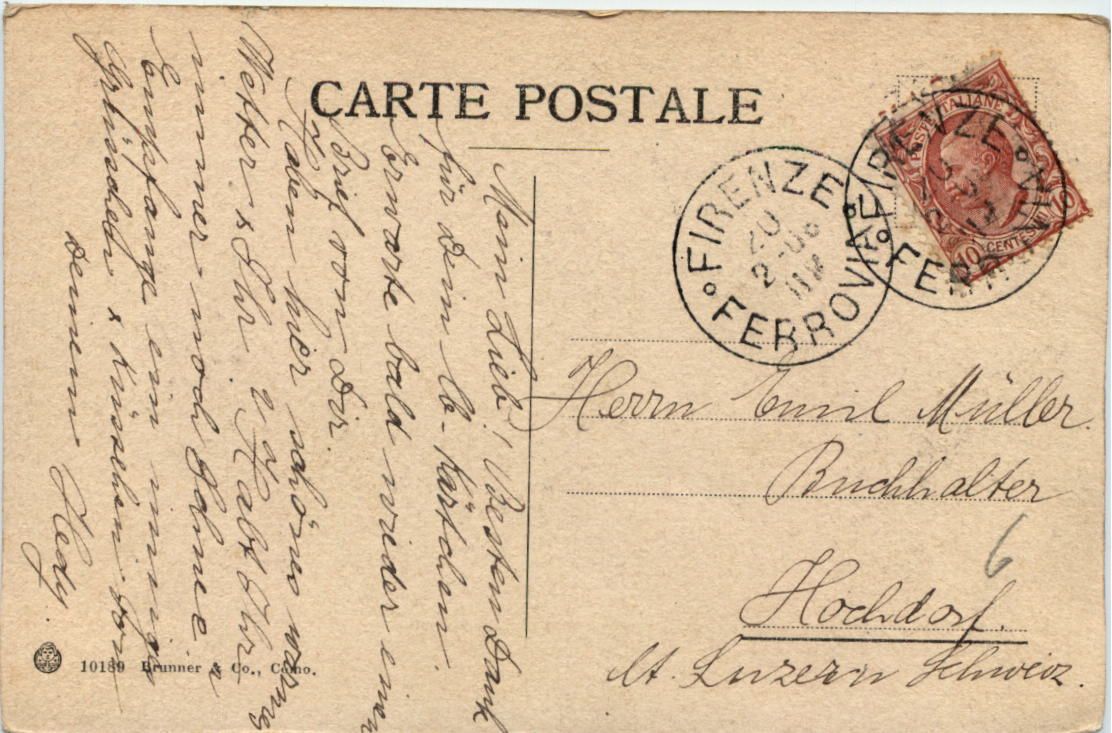 CARTE POSTALE
Mein Lieb! Besten Dank
für Dein lb. Kärtchen.
Erwarte bald wieder einen
Brief von Dir.
Haben hier schönes warmes
Wetter & Ihr? Habt Ihr
immer noch Schnee
Empfange ein innig
Grüsschen & Küsschen von
Deinem Hedy.
FIRENZE
20
FERROVIA
FIRENZE
FERROVIA
POSTE ITALIANE
10 CENTESIMI 10
Herrn Emil Müller.
Buchhalter
Hochdorf.
Kt. Luzern Schweiz.
6
10189 Brunner & Co., Como.